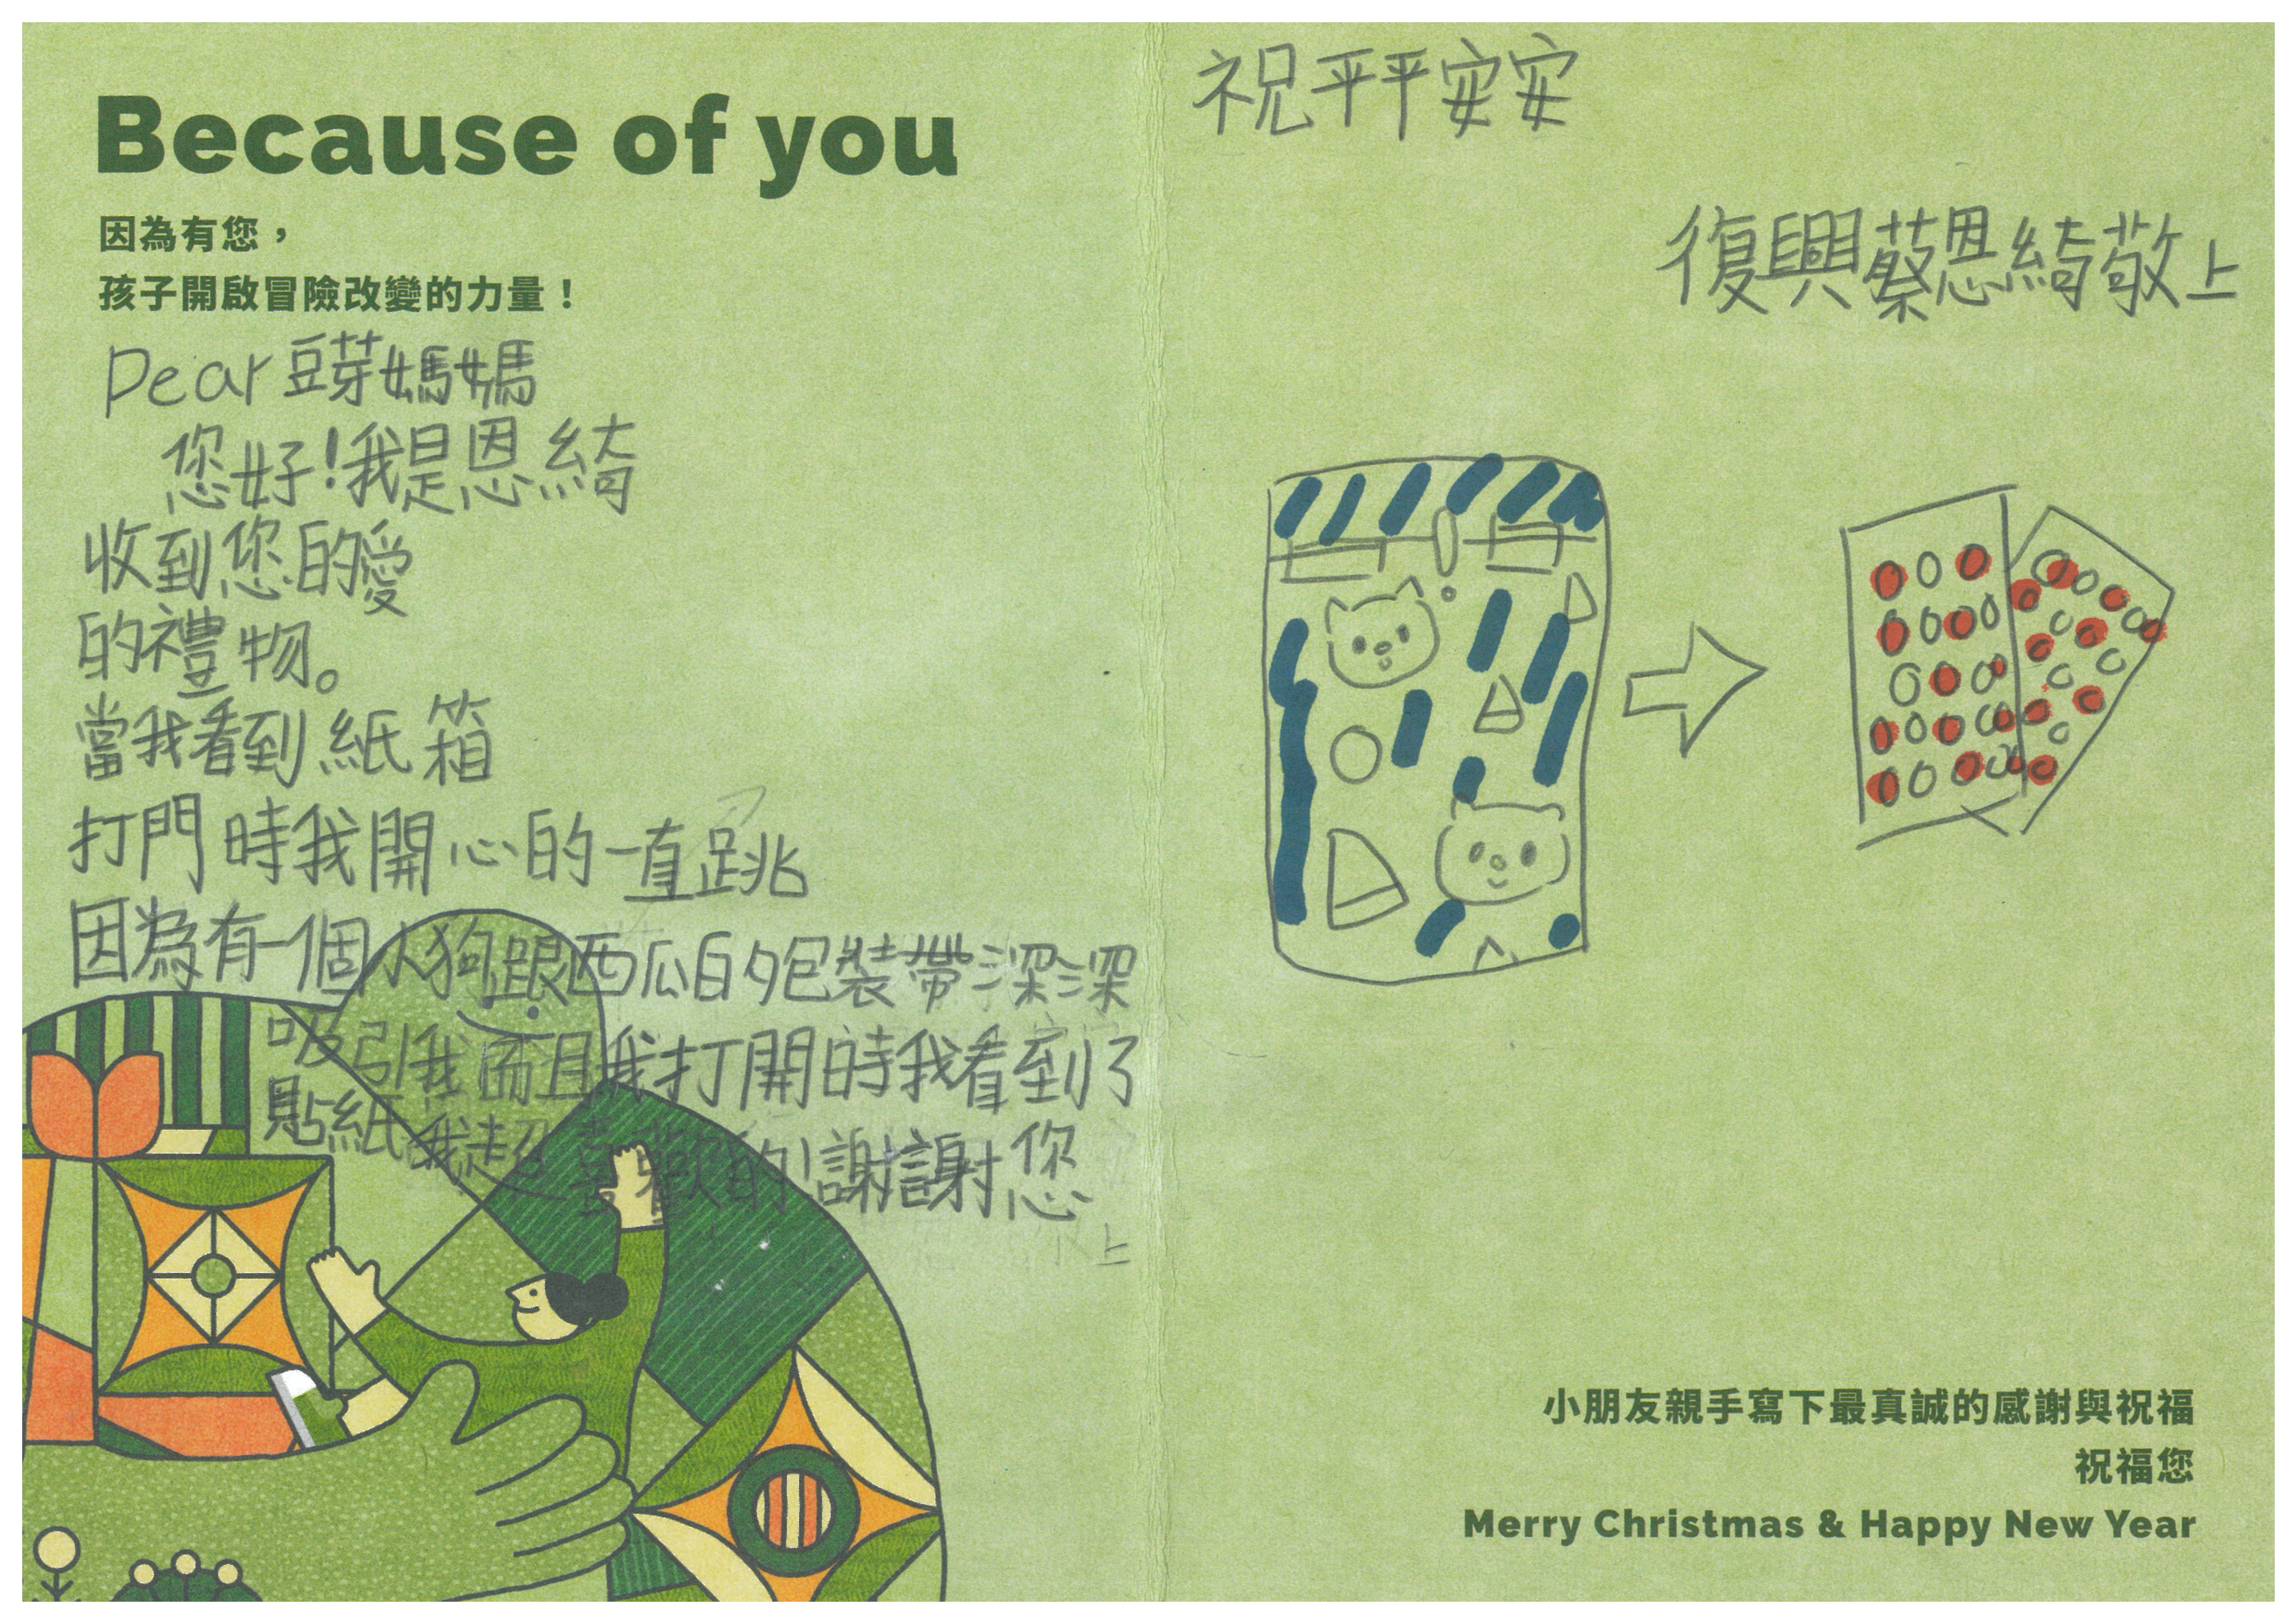 Because of you
因為有您，
孩子開啟冒險改變的力量！
Dear 豆芽媽媽
您好！我是恩綺
收到您的愛
的禮物。
當我看到紙箱
打開時我開心的一直跳
因為有一個小狗跟西瓜的包裝帶深深
吸引我而且我打開時我看到了
貼紙我超喜歡的!謝謝您
祝平平安安
復興蔡恩綺敬上
小朋友親手寫下最真誠的感謝與祝福
祝福您
Merry Christmas & Happy New Year